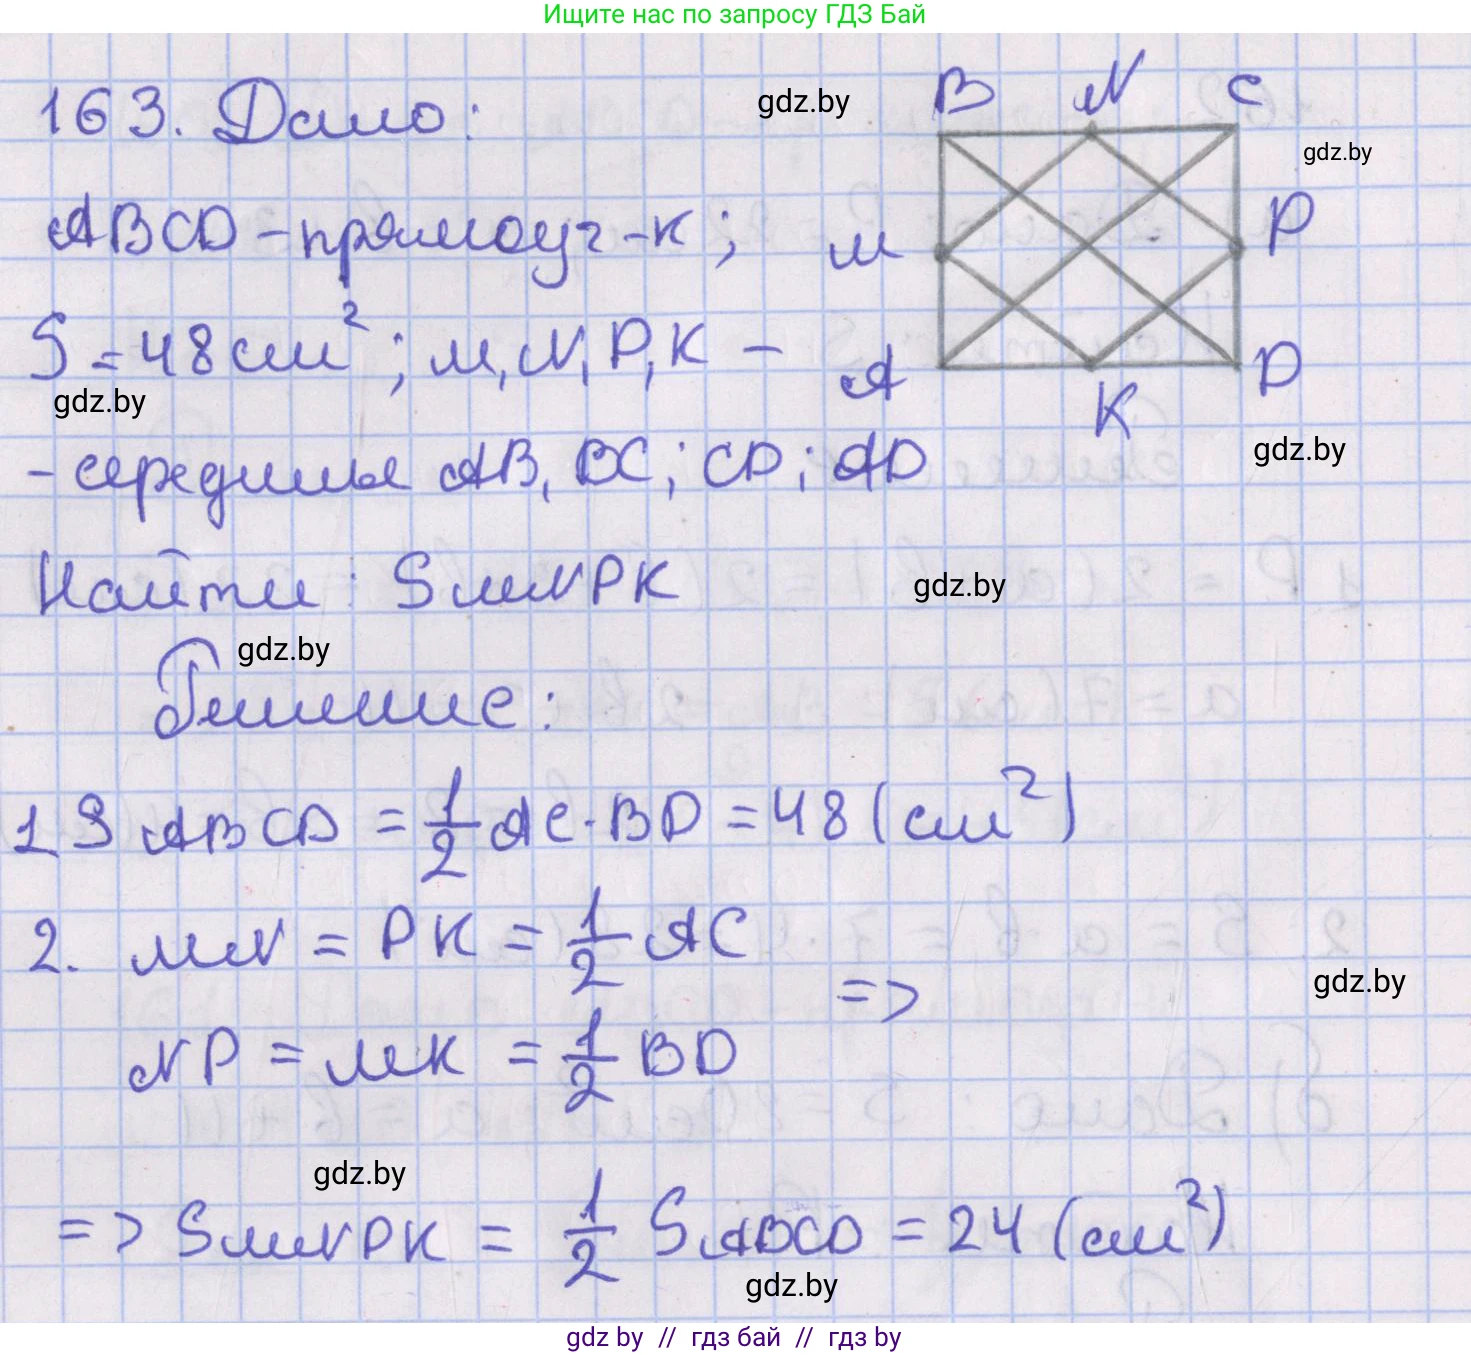 Ищите нас по запросу ГДЗ Бай
163. Дано:
gdz.by
B N C
gdz.by
ABCD - прямоуг-к;
M P
S = 48 см²; M, N, P, K -
A D
gdz.by
K
gdz.by
- середины AB, BC; CD; AD
Найти: S MNPK
gdz.by
gdz.by
Решение:
1. S ABCD = 1/2 AC · BD = 48 (см²)
2. MN = PK = 1/2 AC
=>
gdz.by
NP = MK = 1/2 BD
gdz.by
=> S MNPK = 1/2 S ABCD = 24 (см²)
gdz.by
gdz by // гдз бай // гдз by